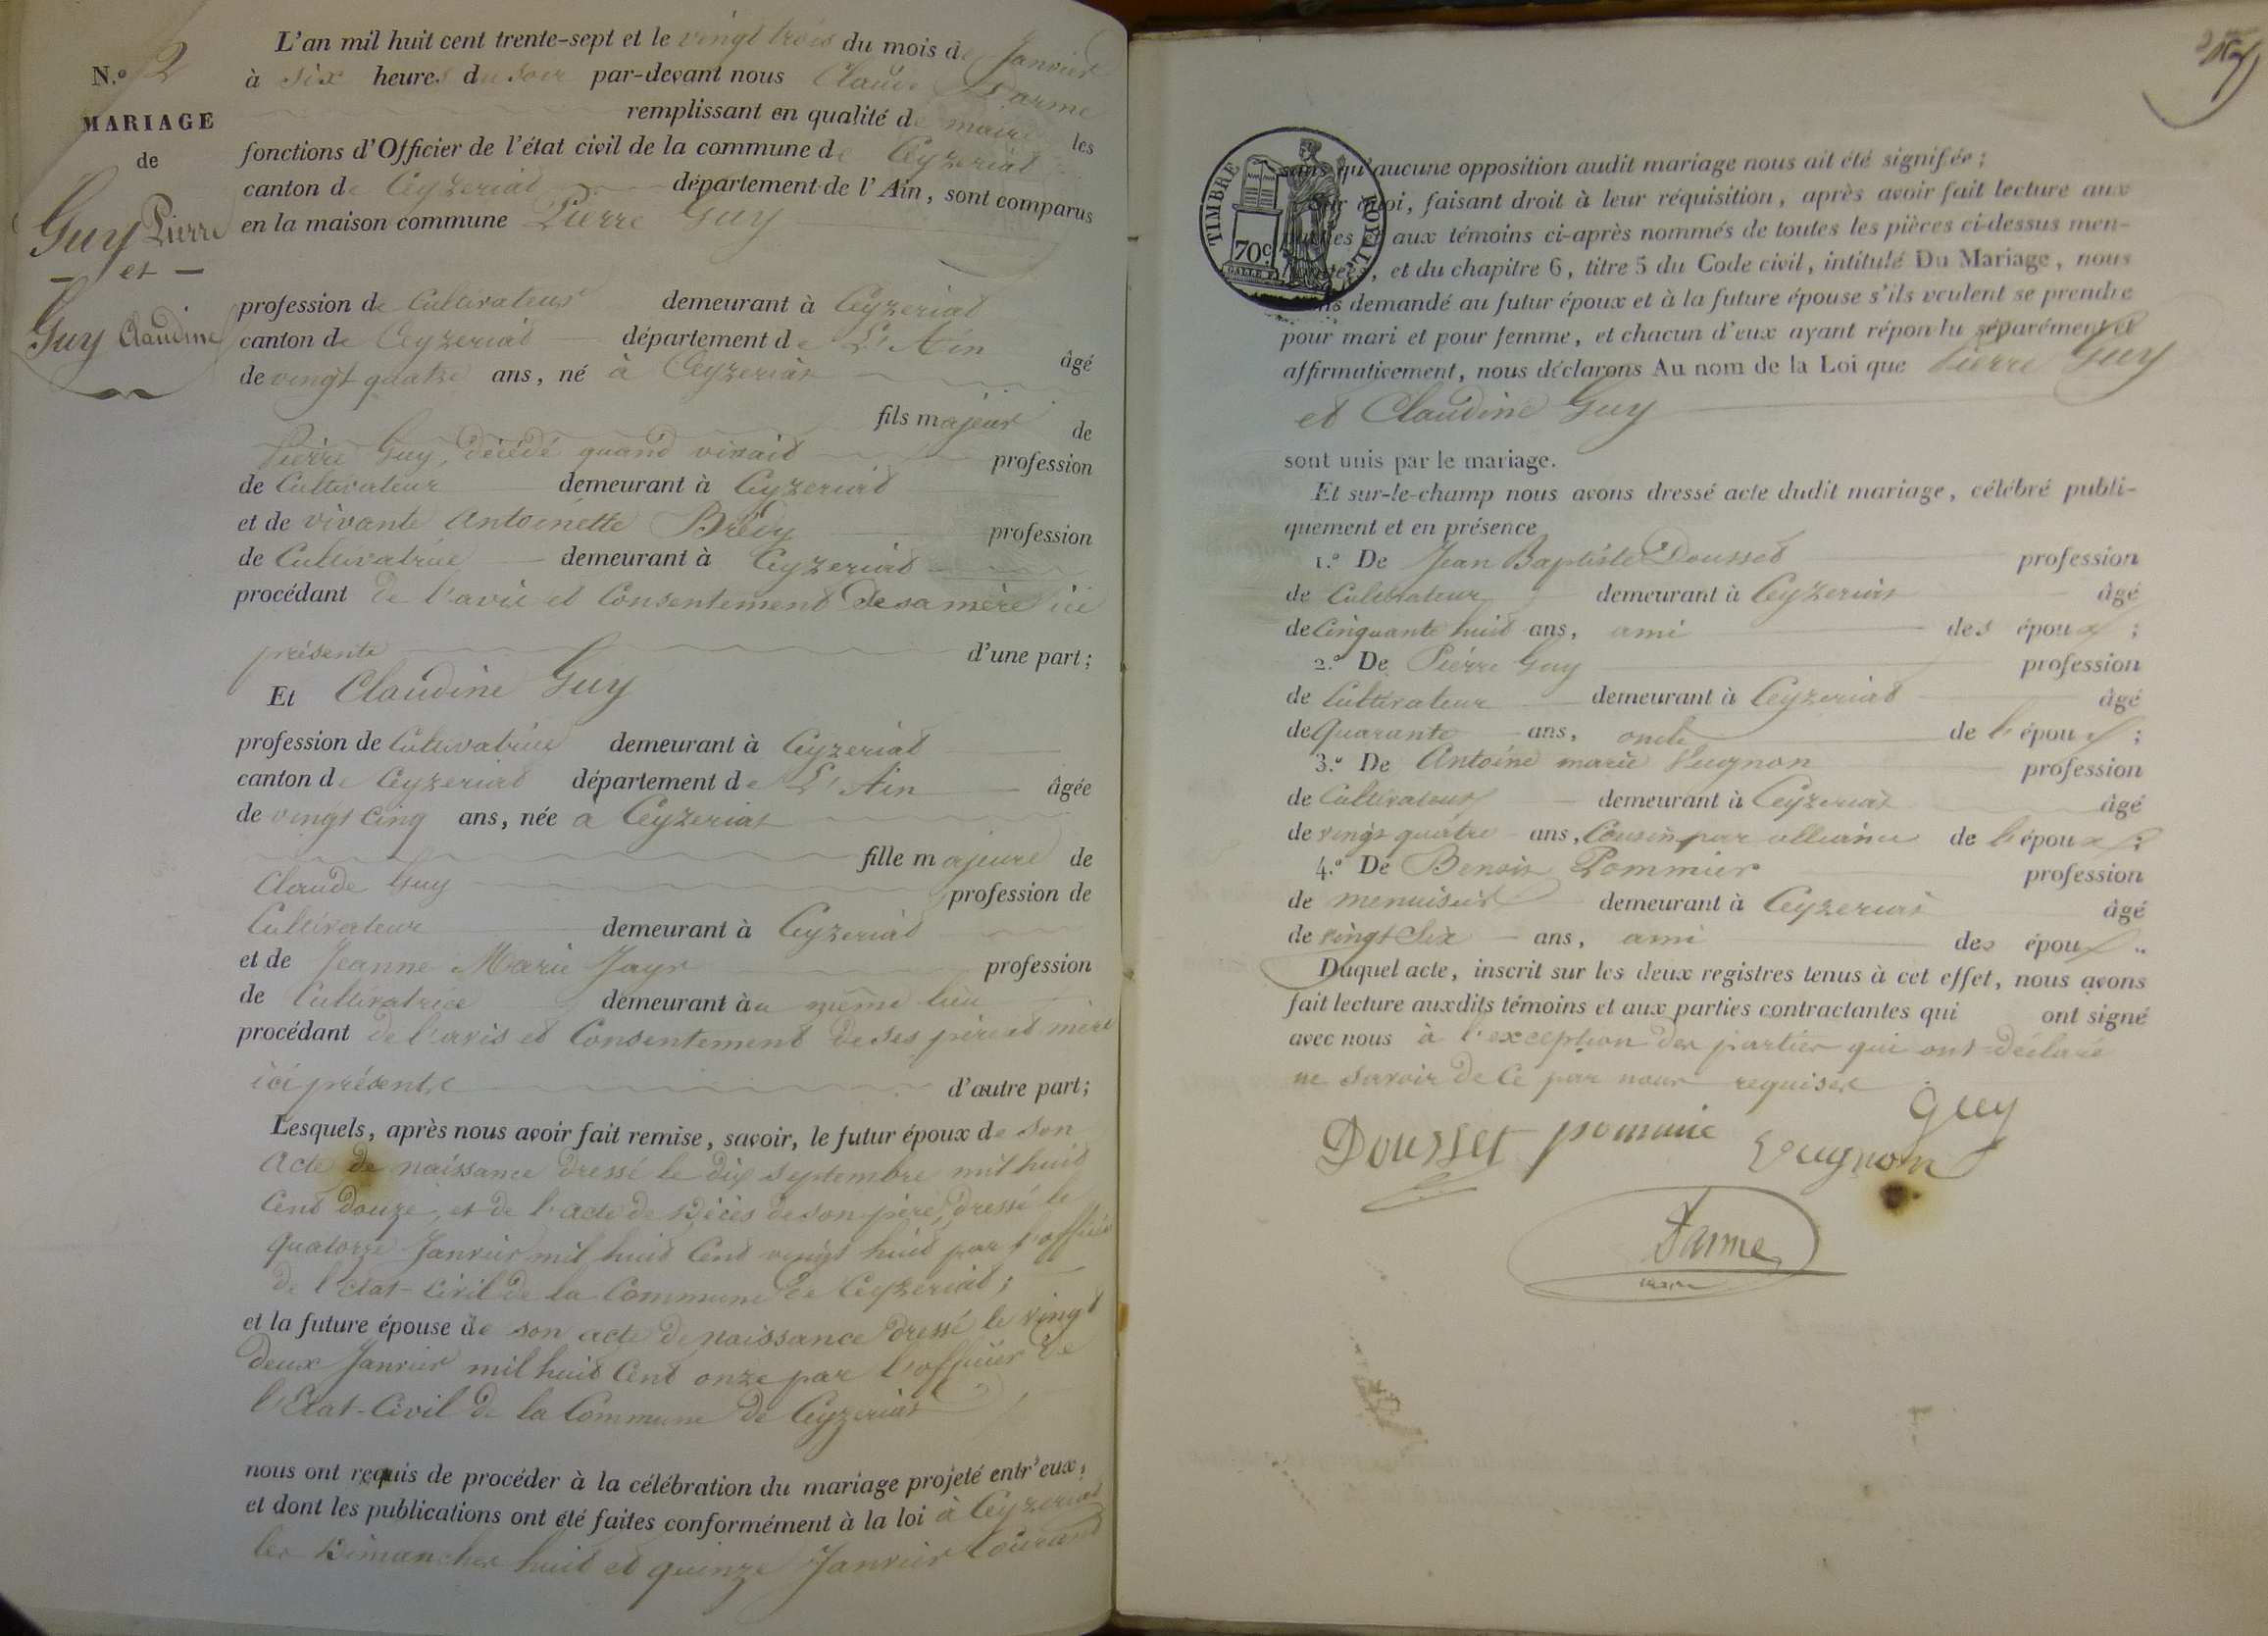 N.º 2
MARIAGE
de
Guy Pierre
et
Guy Claudine
L'an mil huit cent trente-sept et le vingt trois du mois de Janvier
à six heures du soir par-devant nous Claude Darme
remplissant en qualité de maire les
fonctions d'Officier de l'état civil de la commune de Ceyzeriat
canton de Ceyzeriat département de l'Ain, sont comparus
en la maison commune Pierre Guy
profession de Cultivateur demeurant à Ceyzeriat
canton de Ceyzeriat département de L'Ain âgé
de vingt quatre ans, né à Ceyzeriat
fils majeur de
Pierre Guy, décédé quand vivait profession
de Cultivateur demeurant à Ceyzeriat
et de vivante Antoinette Brédy profession
de Cultivatrice demeurant à Ceyzeriat
procédant de l'avis et Consentement de sa mère ici
présente d'une part;
Et Claudine Guy
profession de Cultivatrice demeurant à Ceyzeriat
canton de Ceyzeriat département de L'Ain âgée
de vingt cinq ans, née à Ceyzeriat
fille majeure de
Claude Guy profession de
Cultivateur demeurant à Ceyzeriat
et de Jeanne Marie Jayr profession
de Cultivatrice demeurant au même lieu
procédant de l'avis et Consentement de ses père et mère
ici présents d'autre part;
Lesquels, après nous avoir fait remise, savoir, le futur époux de son
acte de naissance dressé le dix septembre mil huit
cent douze, et de l'acte de Décès de son père, dressé le
quatorze Janvier mil huit Cent vingt huit par l'officier
de l'état-civil de la Commune de Ceyzeriat;
et la future épouse de son acte de naissance dressé le vingt
deux Janvier mil huit Cent onze par l'officier de
l'Etat-Civil de la Commune de Ceyzeriat
nous ont requis de procéder à la célébration du mariage projeté entr'eux,
et dont les publications ont été faites conformément à la loi à Ceyzeriat
les Dimanches huit et quinze Janvier Courant
TIMBRE ROYAL
70c
sans qu'aucune opposition audit mariage nous ait été signifée;
Sur quoi, faisant droit à leur réquisition, après avoir fait lecture aux
parties et aux témoins ci-après nommés de toutes les pièces ci-dessus men-
tionnées, et du chapitre 6, titre 5 du Code civil, intitulé Du Mariage, nous
avons demandé au futur époux et à la future épouse s'ils veulent se prendre
pour mari et pour femme, et chacun d'eux ayant répondu séparément et
affirmativement, nous déclarons Au nom de la Loi que Pierre Guy
et Claudine Guy
sont unis par le mariage.
Et sur-le-champ nous avons dressé acte dudit mariage, célébré publi-
quement et en présence
1.º De Jean Baptiste Dousset profession
de Cultivateur demeurant à Ceyzeriat âgé
de Cinquante huit ans, ami des époux;
2.º De Pierre Guy profession
de Cultivateur demeurant à Ceyzeriat âgé
de Quarante ans, oncle de l'époux;
3.º De Antoine marie Vugnon profession
de Cultivateur demeurant à Ceyzeriat âgé
de vingt quatre ans, Cousin par alliance de l'époux;
4.º De Benoit Pommier profession
de menuisier demeurant à Ceyzeriat âgé
de vingt Six ans, ami des époux.
Duquel acte, inscrit sur les deux registres tenus à cet effet, nous avons
fait lecture auxdits témoins et aux parties contractantes qui ont signé
avec nous à l'exception des parties qui ont déclaré
ne savoir de ce par nous requises
Guy
Dousset pommié Vugnon
Darme